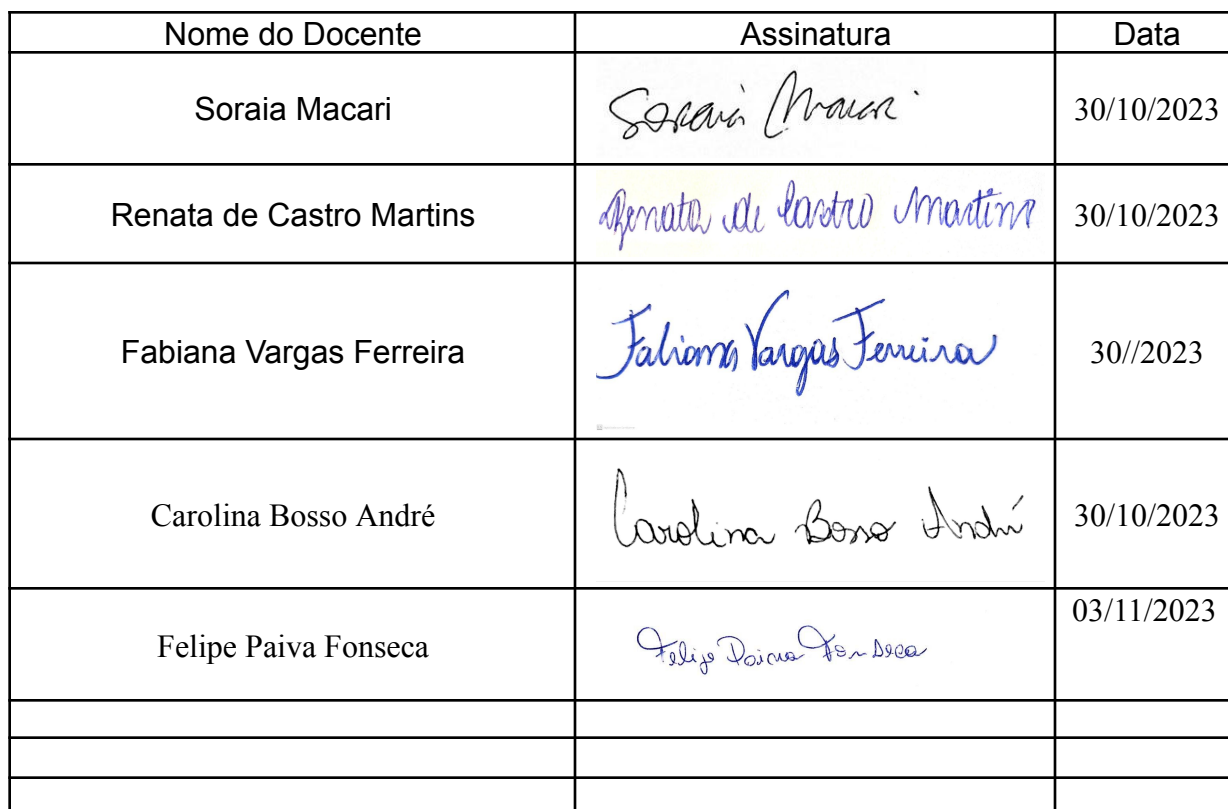 Nome do Docente Assinatura Data
Soraia Macari Soraia Macari 30/10/2023
Renata de Castro Martins Renata de Castro Martins 30/10/2023
Fabiana Vargas Ferreira Fabiana Vargas Ferreira 30//2023
Carolina Bosso André Carolina Bosso André 30/10/2023
Felipe Paiva Fonseca Felipe Paiva Fonseca 03/11/2023